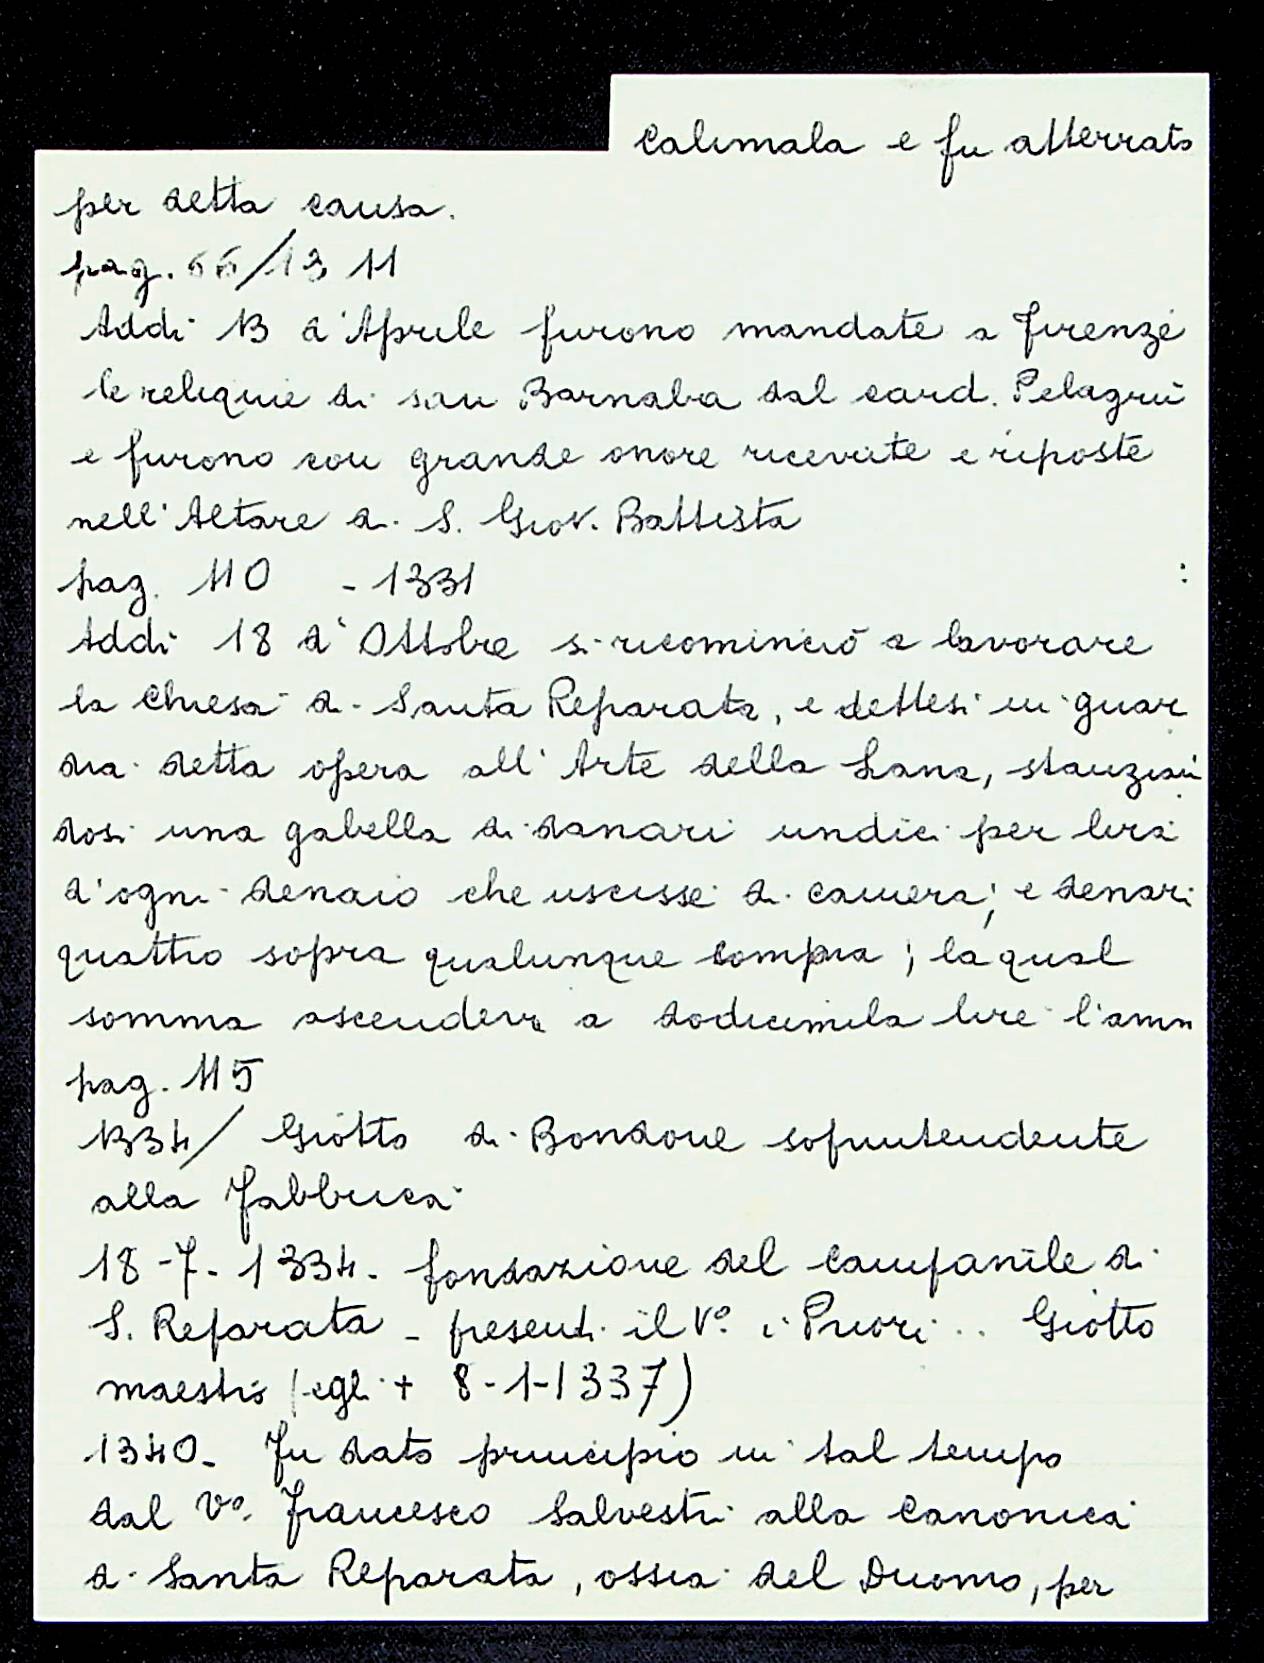 Calimala e fu atterrato
per detta causa.
pag. 66/13 11
Addi 13 d'Aprile furono mandate a Firenze
le reliquie di san Barnaba dal card. Pelagrù
e furono con grande onore ricevute e riposte
nell'Altare di S. Giov. Battista
pag. 110 - 1331 :
Addi 18 d'Ottobre si ricominciò a lavorare
la Chiesa di Santa Reparata, e dettesi in guar
dia detta opera all'Arte della Lana, stanzian
dosi una gabella di danari undici per lira
d'ogni denaio che uscisse di camera; e denari
quattro sopra qualunque compra; la qual
somma ascendeva a dodicimila lire l'anno
pag. 115
1334/ Giotto di Bondone soprintendente
alla Fabbrica
18-7-1334. fondazione del campanile di
S. Reparata - presenti il Vº. i Priori .. Giotto
maestro (egli + 8-1-1337)
1340. Fu dato principio in tal tempo
dal Vº. Francesco Salvestri alla Canonica
di Santa Reparata, ossia del Duomo, per